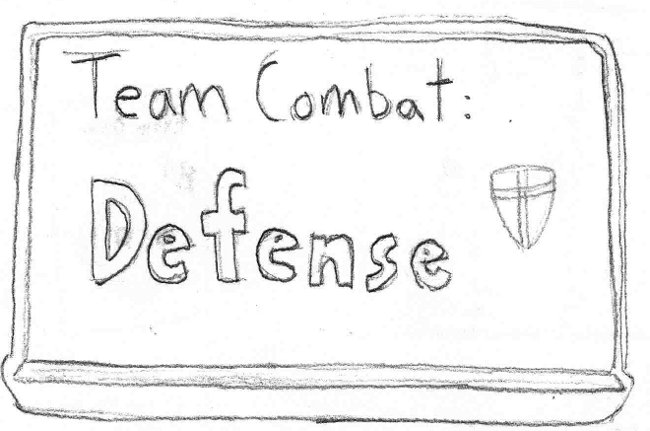 Team Combat:
Defense